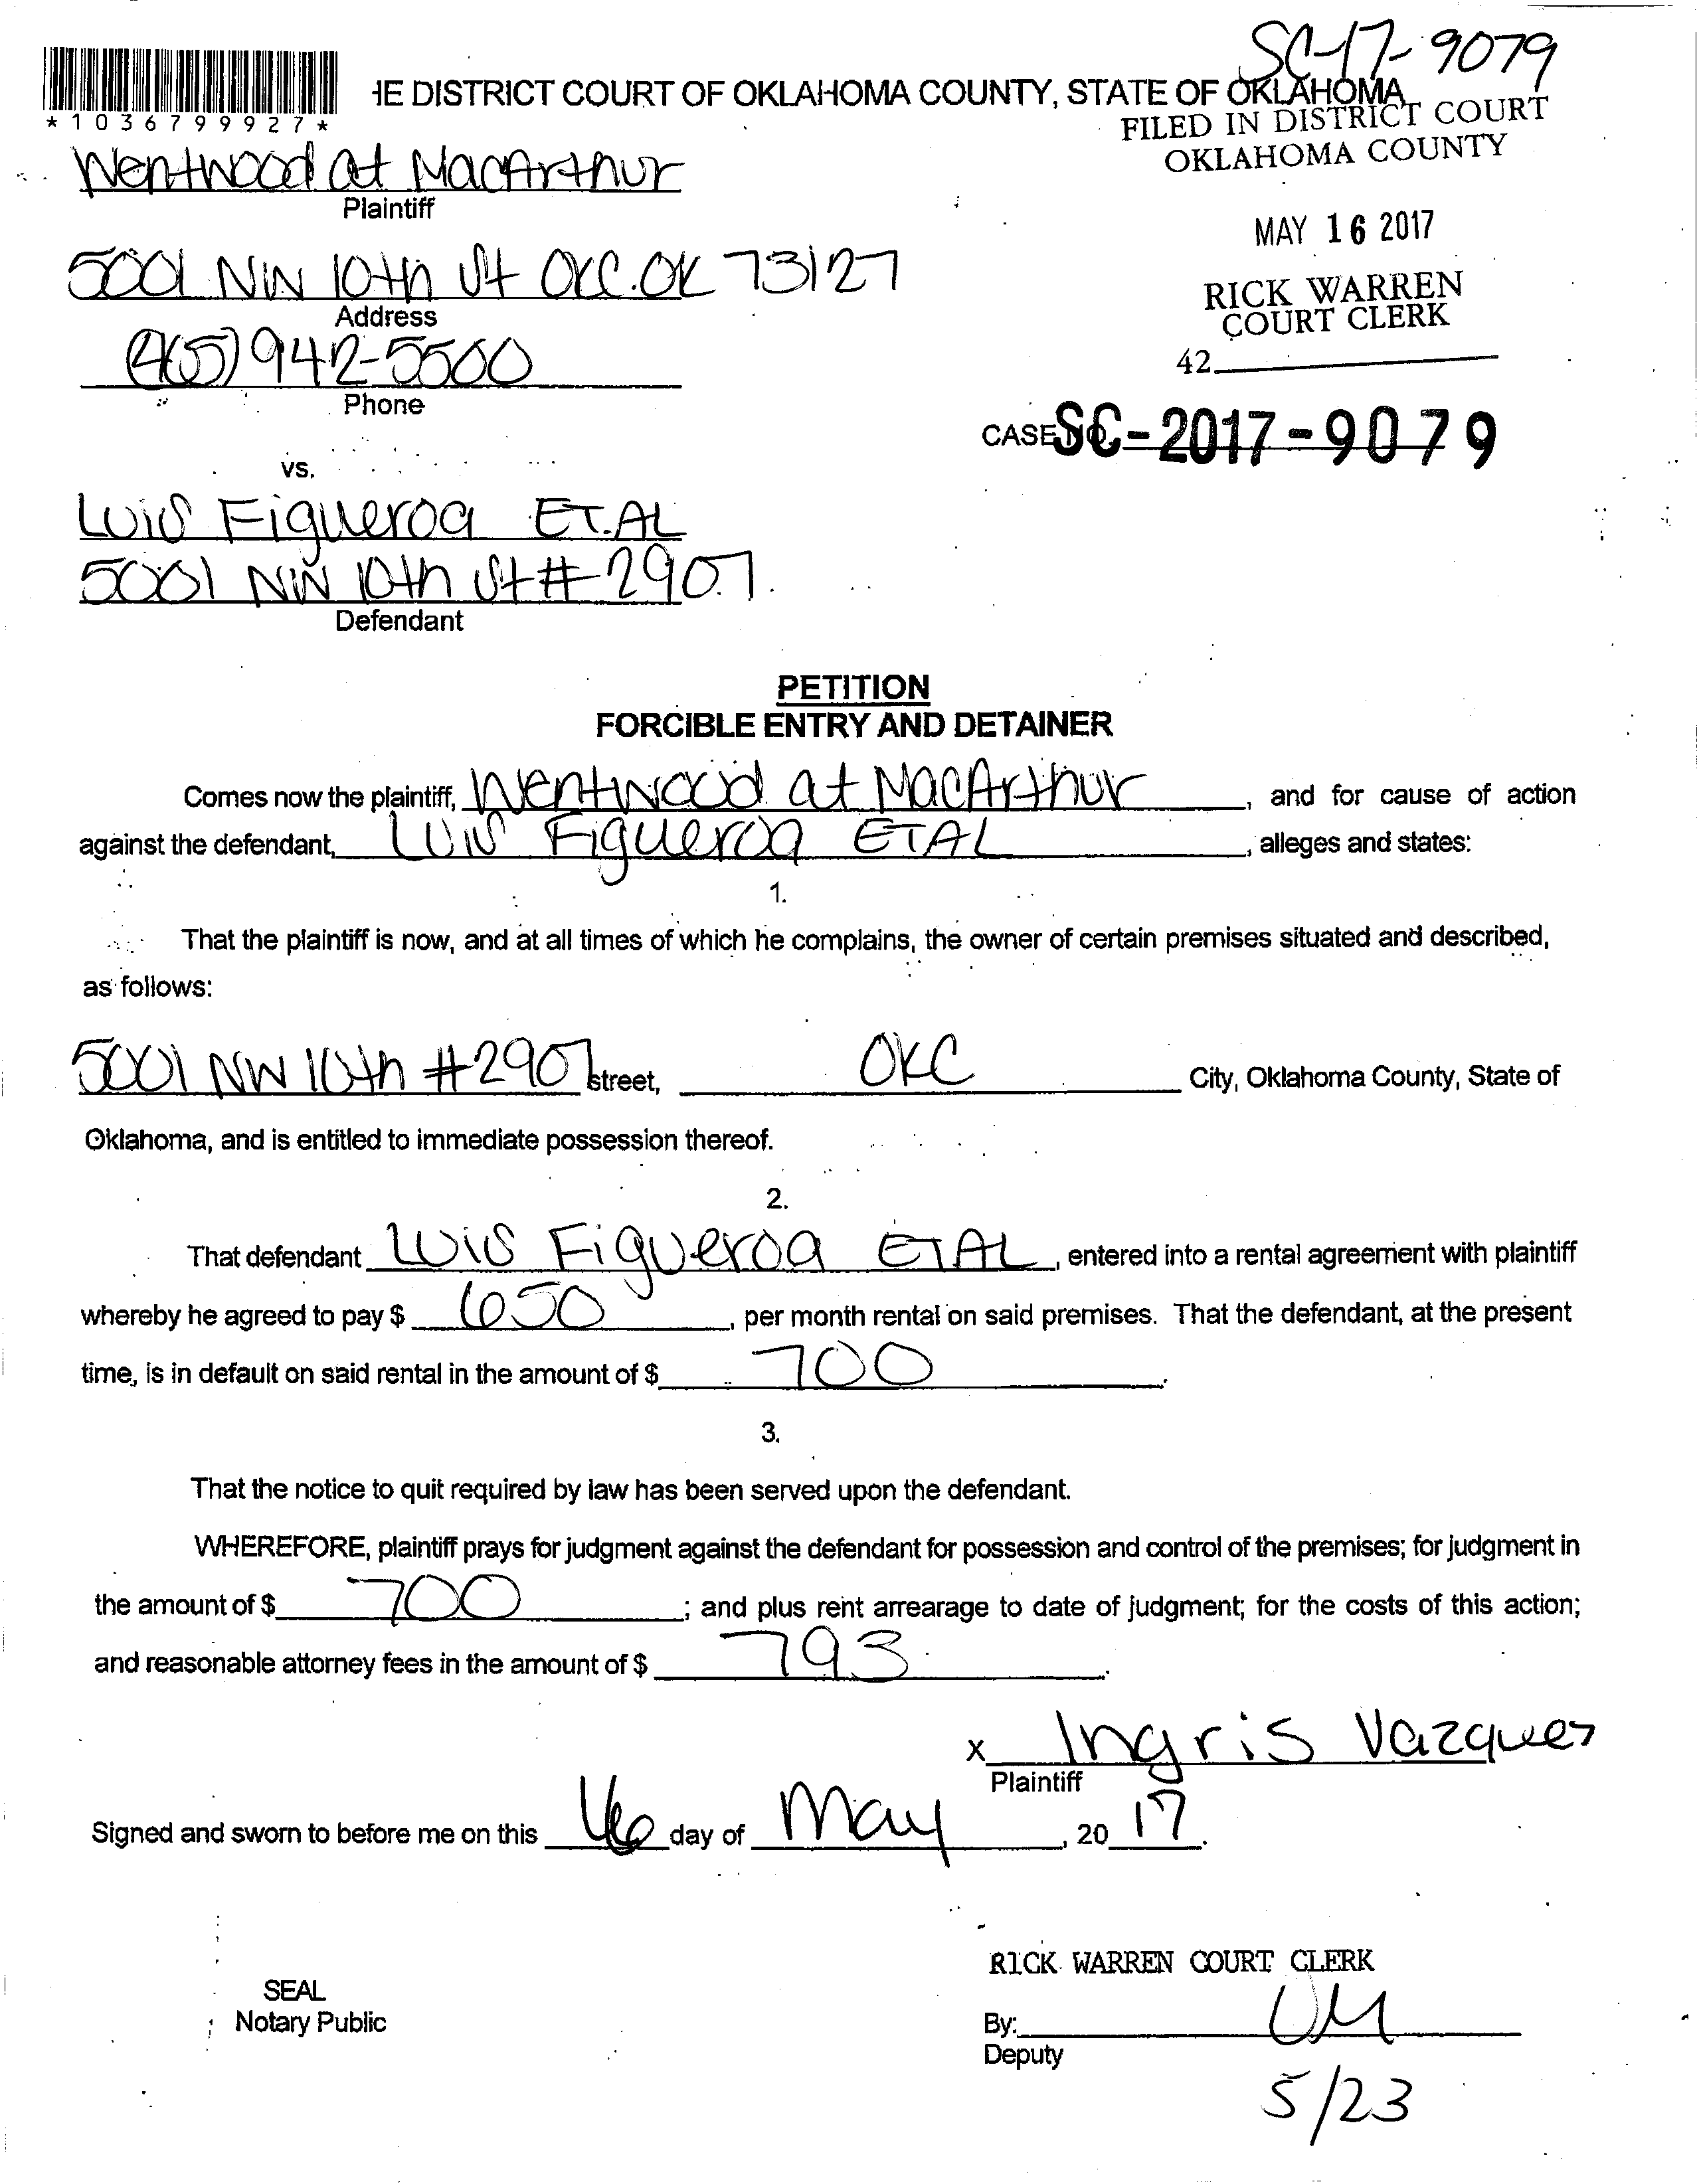 SC-17-9079
*1036799927*
HE DISTRICT COURT OF OKLAHOMA COUNTY, STATE OF OKLAHOMA
FILED IN DISTRICT COURT
OKLAHOMA COUNTY
Wentwood at MacArthur
Plaintiff
MAY 16 2017
5001 NW 10th St OKC.OK 73127
Address
RICK WARREN
COURT CLERK
(405) 942-5500
Phone
42
CASE NO. SC-2017-9079
vs.
Luis Figueroa ET.AL
5001 NW 10th St # 2907
Defendant
PETITION
FORCIBLE ENTRY AND DETAINER
Comes now the plaintiff, Wentwood at MacArthur, and for cause of action
against the defendant, Luis Figueroa ETAL, alleges and states:
1.
That the plaintiff is now, and at all times of which he complains, the owner of certain premises situated and described,
as follows:
5001 NW 10th #2907 street, OKC City, Oklahoma County, State of
Oklahoma, and is entitled to immediate possession thereof.
2.
That defendant Luis Figueroa ETAL, entered into a rental agreement with plaintiff
whereby he agreed to pay $ 650, per month rental on said premises. That the defendant, at the present
time, is in default on said rental in the amount of $ 700.
3.
That the notice to quit required by law has been served upon the defendant.
WHEREFORE, plaintiff prays for judgment against the defendant for possession and control of the premises; for judgment in
the amount of $ 700; and plus rent arrearage to date of judgment; for the costs of this action;
and reasonable attorney fees in the amount of $ 793.
x Ingris Vazquez
Plaintiff
Signed and sworn to before me on this 16 day of May, 20 17.
RICK WARREN COURT CLERK
SEAL
Notary Public
By:
Deputy
5/23